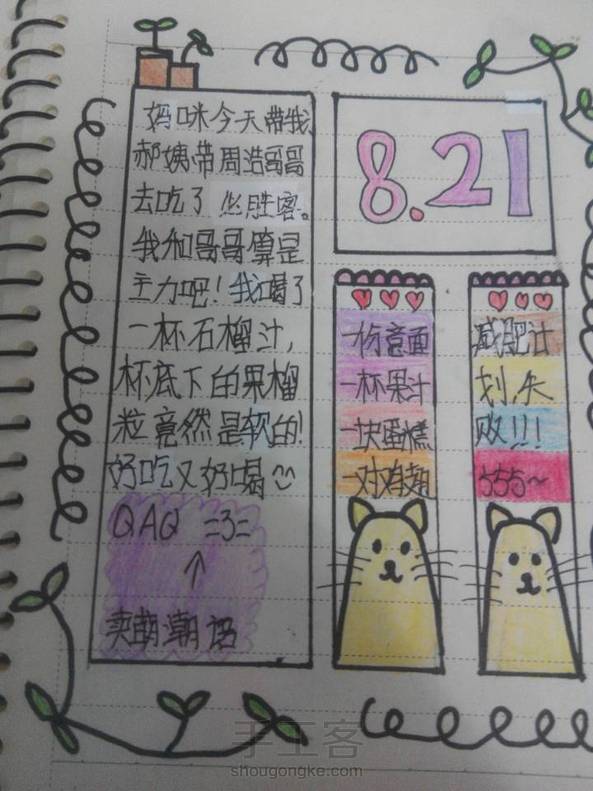 妈咪今天带我,
郝姨带周浩哥哥
去吃了必胜客。
我和哥哥算是
主力吧!我喝了
一杯石榴汁,
杯底下的果榴
粒竟然是软的!
好吃又好喝
QAQ =3=
↑
卖萌潮语
8.21
一份意面
一杯果汁
一块蛋糕
一对鸡翅
减肥计
划,失
败!!!
555~
手工客
shougongke.com